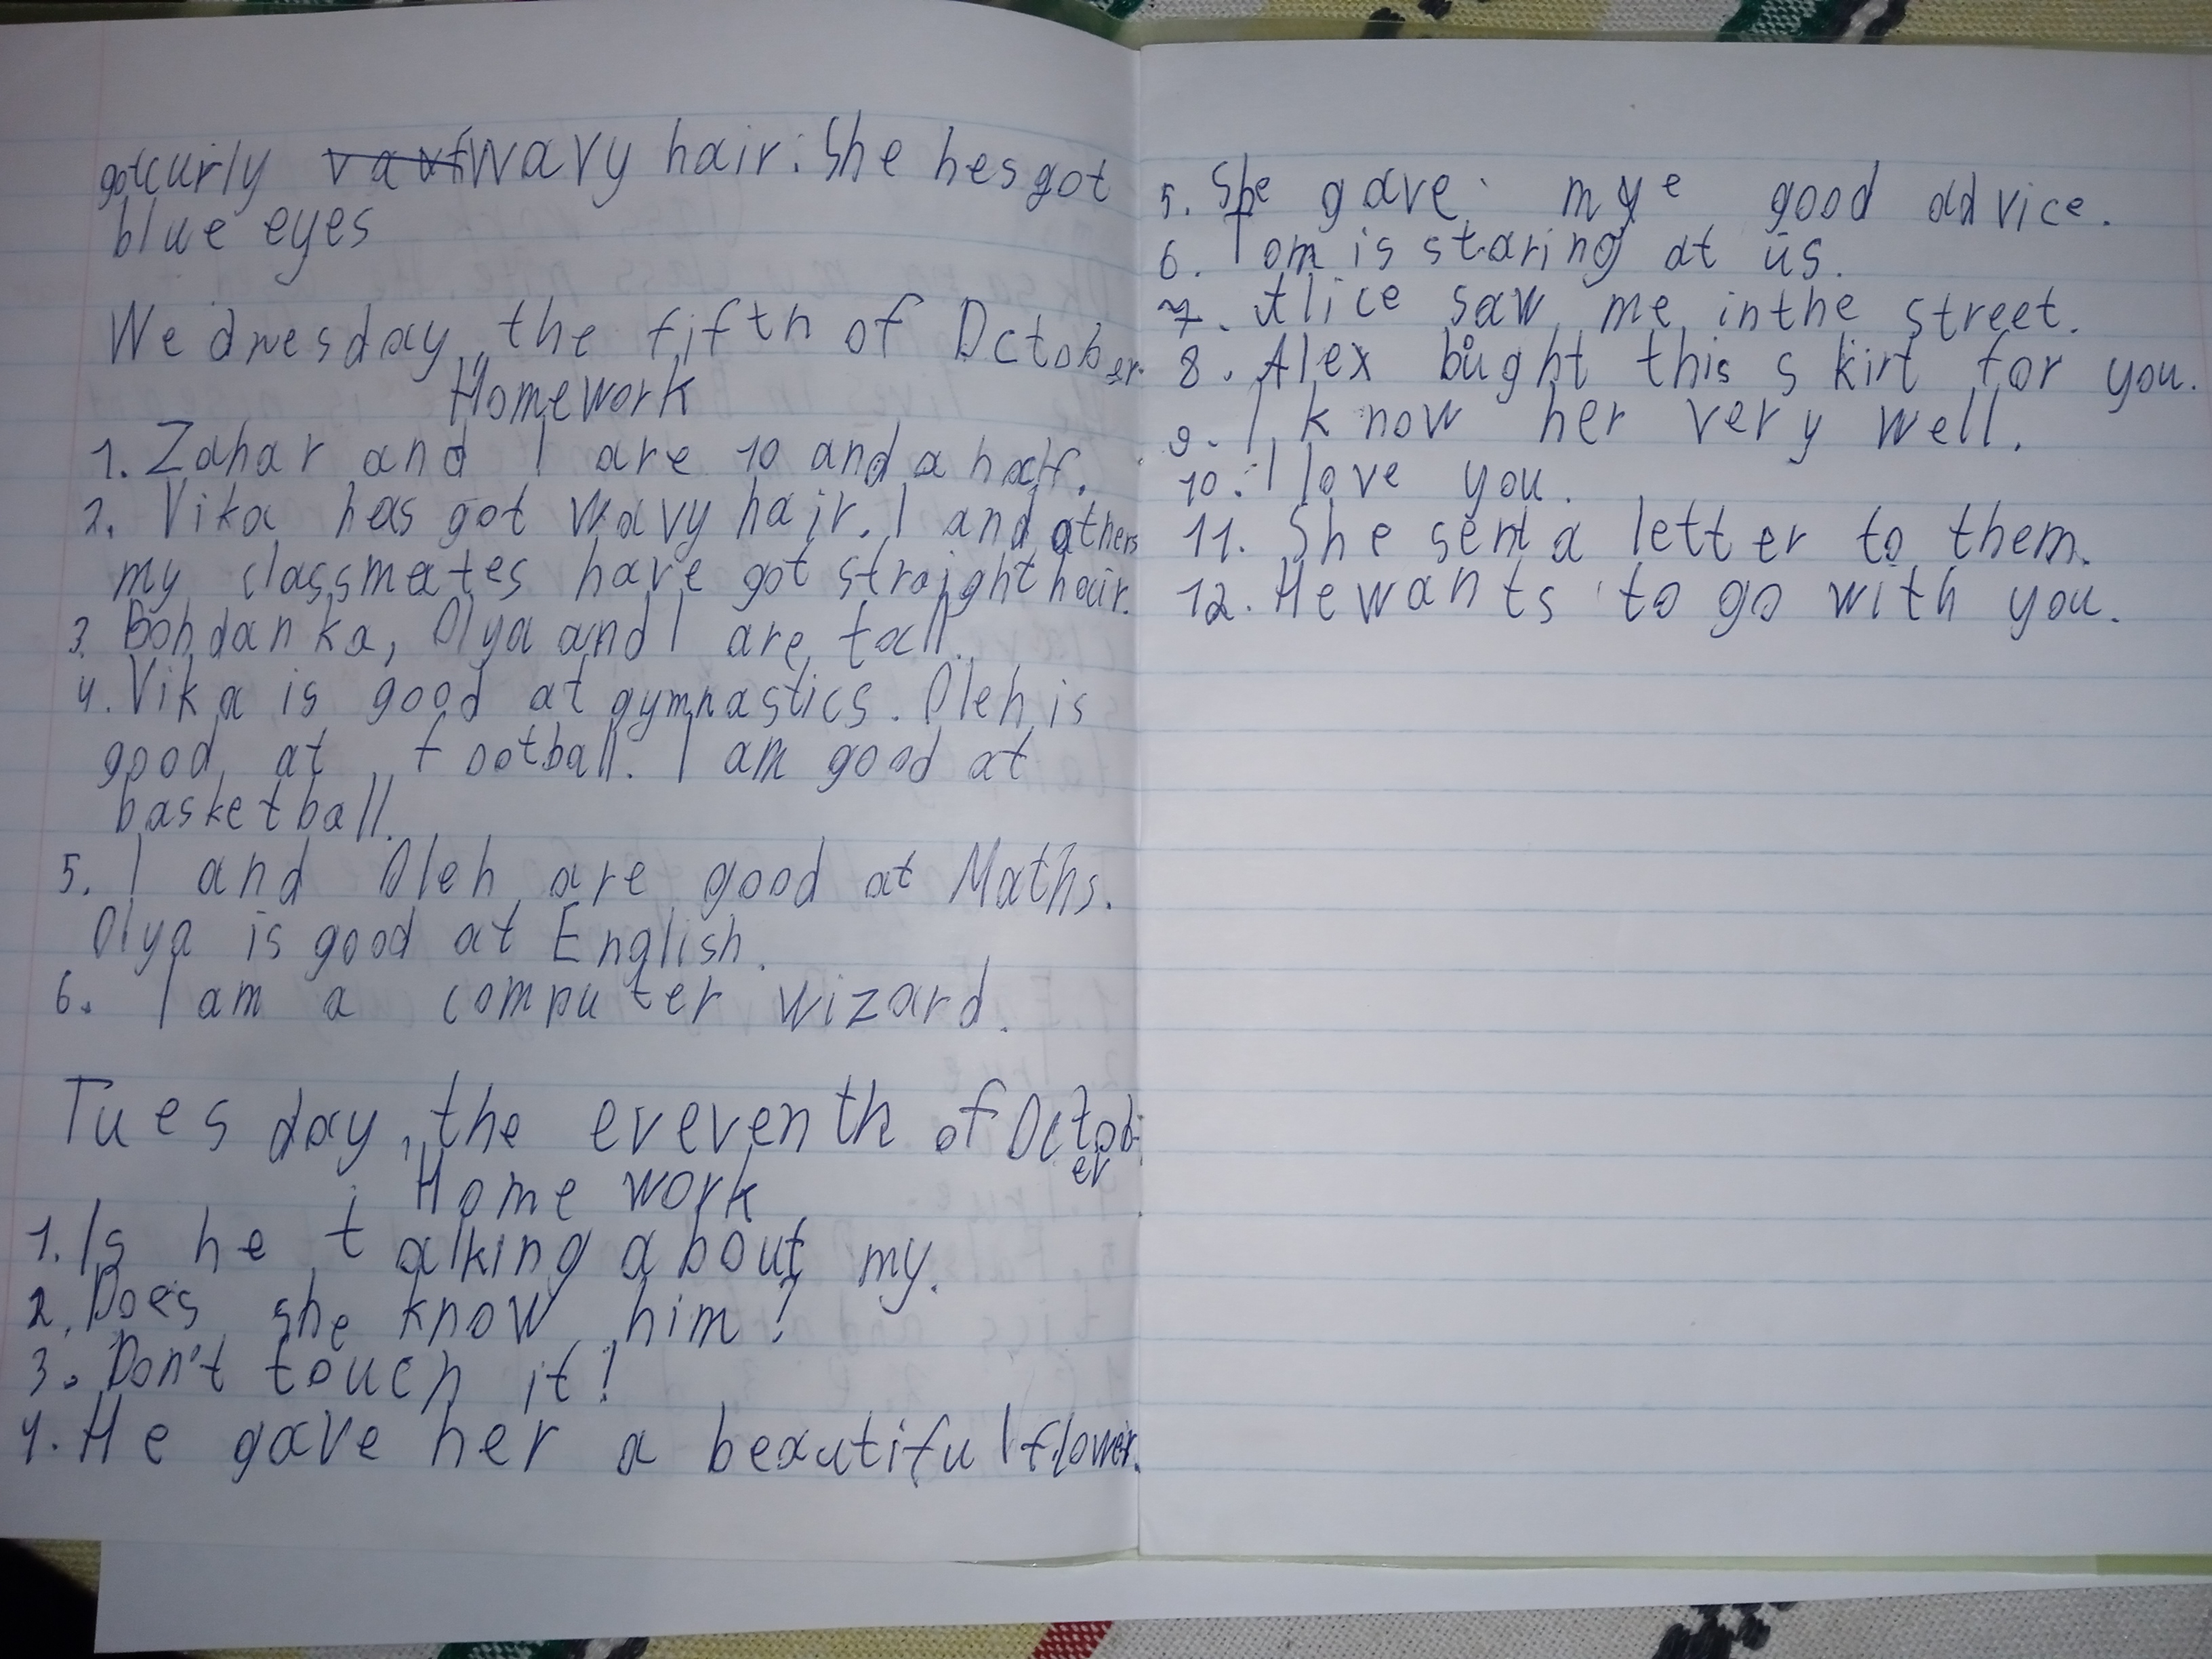 got curly wavy hair. She hes got
blue eyes
Wednesday, the fifth of October
Homework
1. Zahar and I are 10 and a half.
2. Vika has got wavy hair. I and others
my classmates have got straight hair.
3. Bohdanka, Olya and I are tall.
4. Vika is good at gymnastics. Oleh is
good at football. I am good at
basketball.
5. I and Oleh are good at Maths.
Olya is good at English.
6. I am a computer wizard.
Tuesday, the eleventh of October
Home work
1. Is he talking about my.
2. Does she know him?
3. Don't touch it!
4. He gave her a beautiful flower.
5. She gave me good advice.
6. Tom is staring at us.
7. Alice saw me in the street.
8. Alex bught this skirt for you.
9. I know her very well.
10. I love you.
11. She sent a letter to them.
12. He wants to go with you.